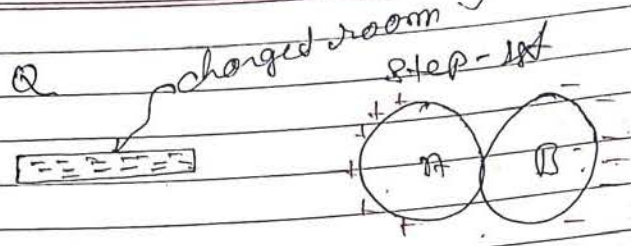 charged room
step-1st
Q
A B